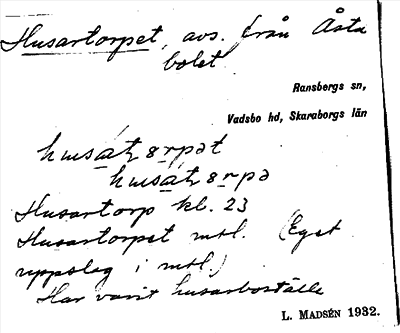 Husartorpet, avs. från Åsta
bolet
Ransbergs sn,
Vadsbo hd, Skaraborgs län
husátsrpet
husátsrpa
Husartorp kl. 23
Husartorpet mtl. (Eget
uppslag i mtl.)
Har varit husarboställe
L. MADSÉN 1932.